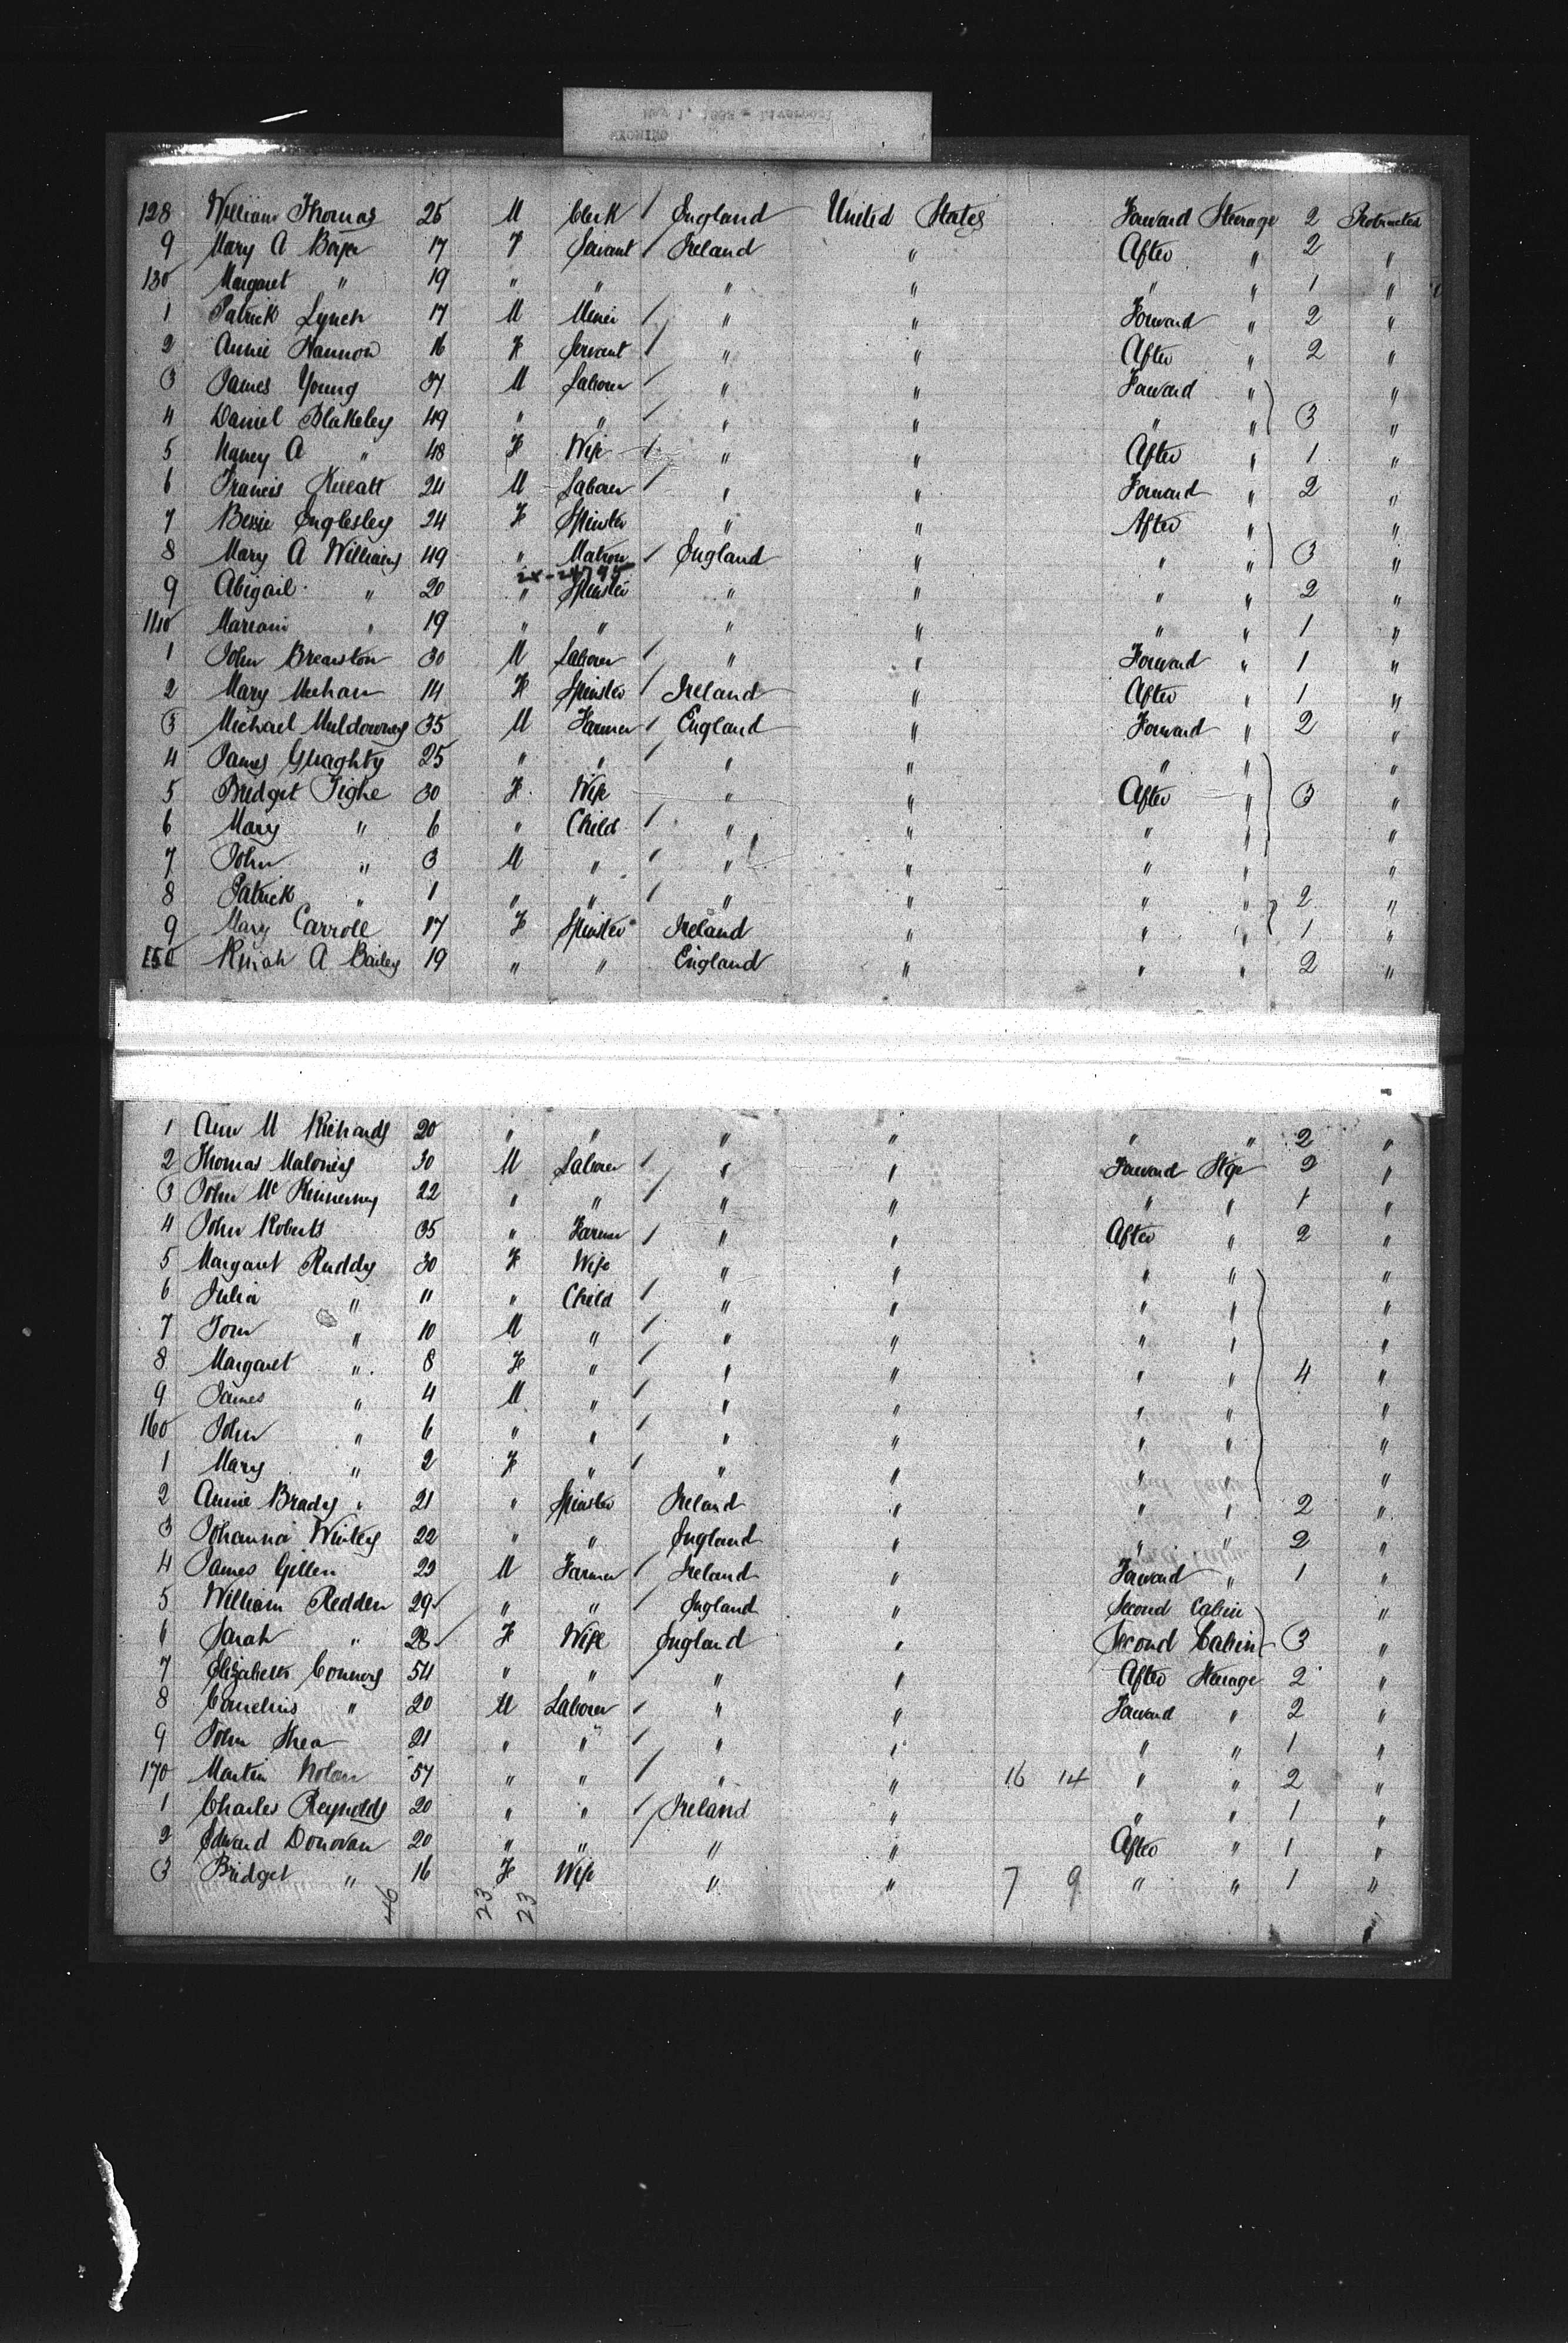 128 William Thomas 25 M Clerk / England United States Forward Steerage 2 Protracted
9 Mary A 17 F Servant / Ireland " After " 2 "
130 Margaret " 19 " " " " " " 1 "
1 Patrick Lynch 17 M Miner / " " Forward " 2 "
2 Annie Hannon 16 F Servant / " " After " 2 "
3 James Young 37 M Laborer / " " Forward " "
4 Daniel Blakeley 49 " " / " " " " 3 "
5 Nancy A " 48 F Wife / " " After " 1 "
6 Francis 24 M Laborer / " " Forward " 2 "
7 Bessie Inglesley 24 F Spinster " " After " "
8 Mary A Williams 49 " Matron / England " " " 3 "
9 Abigail " 20 " Spinster " " " " 2 "
140 " 19 " " " " " " 1 "
1 John Brearston 30 M Laborer / " " Forward " 1 "
2 Mary Meehan 14 F Spinster / Ireland " After " 1 "
3 Michael Muldowney 35 M Farmer / England " Forward " 2 "
4 James 25 " " / " " " " "
5 Bridget Tighe 30 F Wife " " After " 3 "
6 Mary " 6 " Child / " " " " "
7 John " 3 M " / " " " "
8 Patrick " 1 " " / " " " " 2 "
9 Mary Carroll 17 F Spinster Ireland " " " 1 "
150 A Bailey 19 " " England " " " 2 "
1 Ann M Richards 20 " " " " " " 2 "
2 Thomas Maloney 30 M Laborer / " " Forward Stge 2 "
3 John Mc Kinnerney 22 " " / " " " " 1 "
4 John Roberts 35 " Farmer / " " After " 2 "
5 Margaret Ruddy 30 F Wife " " " " "
6 Julia " 11 " Child / " " " " "
7 Tom " 10 M " / " " " " "
8 Margaret " 8 F " / " " " " 4 "
9 James " 4 M " / " " " " "
160 John " 6 " " / " " " " "
1 Mary " 2 F " / " " " " "
2 Annie Brady 21 " Spinster Ireland " " " 2 "
3 Johanna Winters 22 " " England " " " 2 "
4 James Gillen 23 M Farmer / Ireland " Forward " 1 "
5 William Redden 29 " " / England " Second Cabin "
6 Sarah " 28 F Wife England " Second Cabin 3 "
7 Elizabeth Connors 54 " " / " " After Steerage 2 "
8 Cornelius " 20 M Laborer / " " Forward " 2 "
9 John Shea 21 " " / " " " " 1 "
170 Martin Nolan 57 " " / " " 16 14 " " 2 "
1 Charles Reynolds 20 " " / Ireland " " " 1 "
2 Edward Donovan 20 " " / " " After " 1 "
3 Bridget " 16 F Wife " " 7 9 " " 1 "
46 23 23